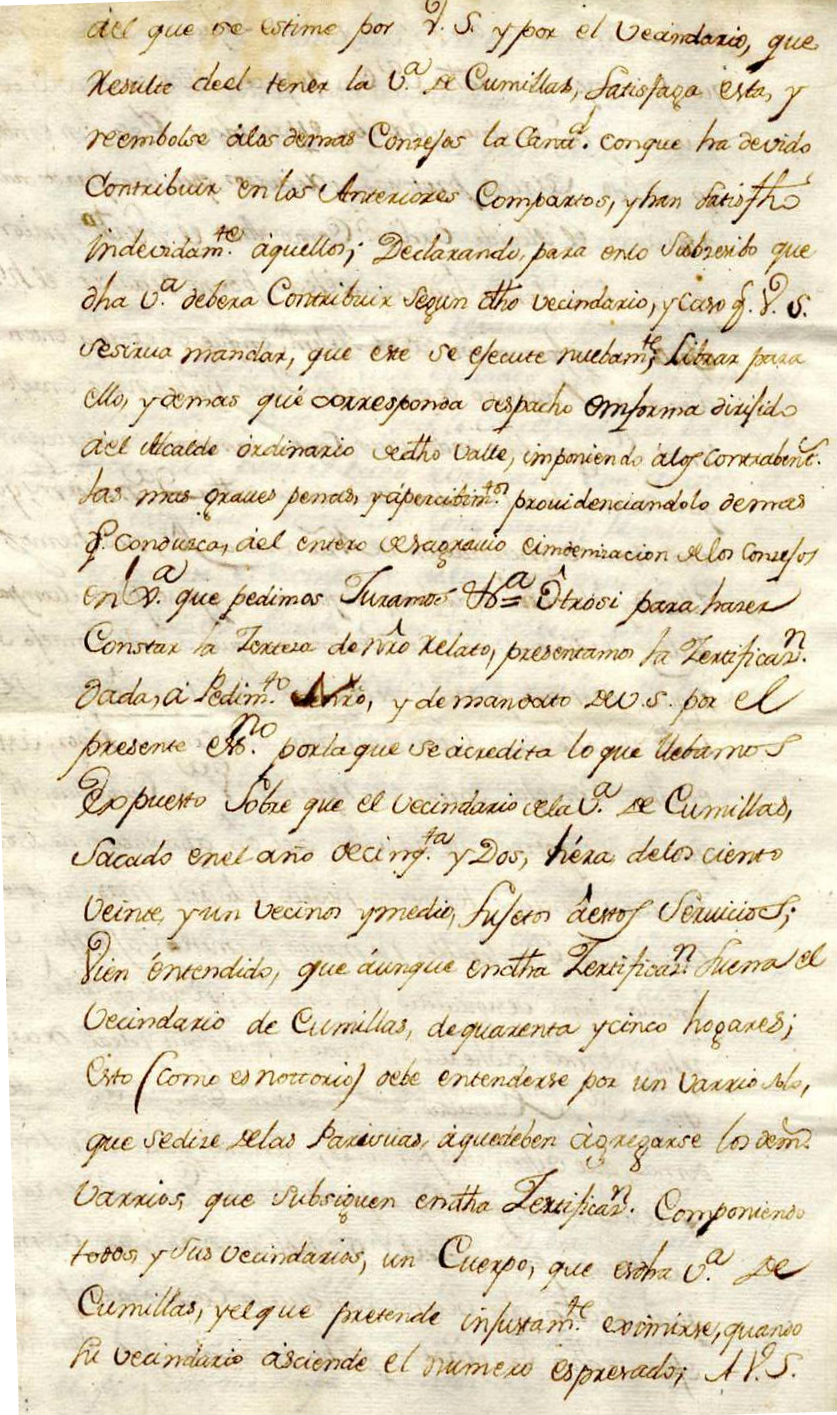 del que se estime por V. S. y por el vecindario, que
Resulte deel tener la V.ª de Cumillas, satisfaga esta, y
reembolse alos demas Consejos la Cant.ª conque ha devido
Contribuir en los Anteriores Compartos, y han satisfho
indevidam.te aquellos; Declarando, para enlo subzesibo que
dha V.ª debera Contribuir segun dho vecindario, y caso q.e V. S.
sesirva mandar, que este se ejecute nuebam.te; Librar para
ello, y demas que corresponda despacho enforma dirijido
ael Alcalde ordinario dedho valle, imponiendo alos contrabent.s
las mas graves penas, y apercibim.tos providenciandolo demas
q.e conduzca, ael entero desagravio eindemnizacion delos Consejos
en V.ª que pedimos Juramos &ª = Otrosi para hazer
Constar la Zerteza de nrô Relato, presentamos la Zertificaz.n
dada, a Pedim.to nrô, y de mandato de V. S. por el
presente ess.no porla que se acredita lo que llebamos
Expuesto sobre que el vecindario dela V.ª de Cumillas,
sacado enel año decinq.ta y Dos, hera delos ciento
veinte, y un vecinos ymedio, sujetos aestos servicios;
Vien entendido, que aunque endha Zertificaz.n suena el
vecindario de Cumillas, dequarenta ycinco hogares;
Esto (como es nottorio) debe entenderse por un varrio solo,
que sedize delas Parivuas, aquedeben agregarse los dem.s
varrios, que subsiguen endha Zertificaz.n Componiendo
todos, y sus vecindarios, un Cuerpo, que esdha V.ª de
Cumillas, yelque pretende injustam.te eximirse, quando
su vecindario asciende el numero espresado; A V. S.